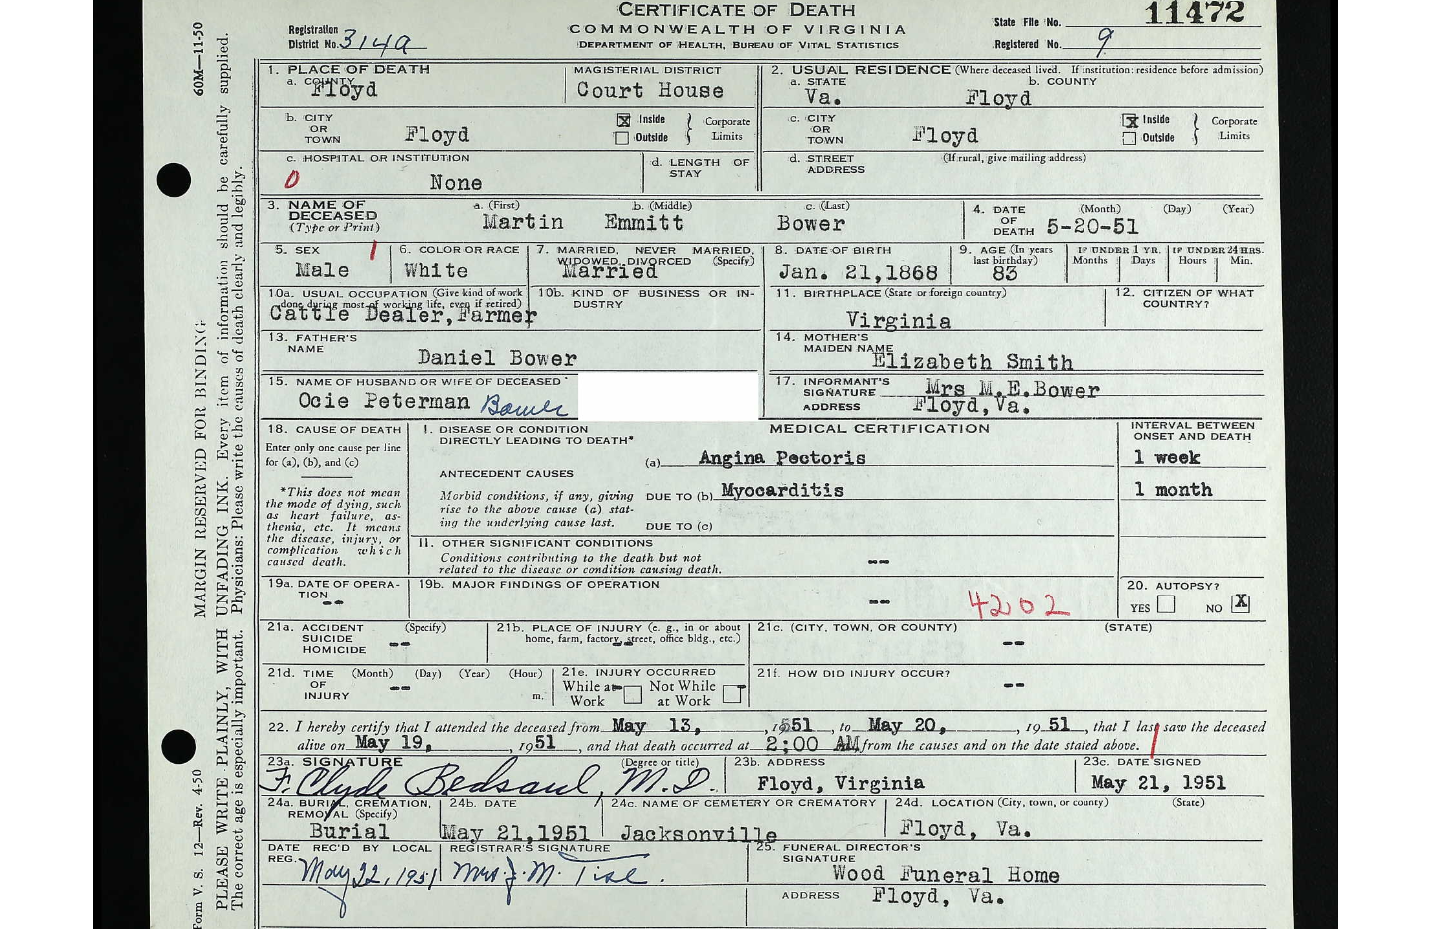 CERTIFICATE OF DEATH
COMMONWEALTH OF VIRGINIA
DEPARTMENT OF HEALTH, BUREAU OF VITAL STATISTICS
Registration District No. 314a
State File No. 11472
Registered No. 9
60M—11-50
MARGIN RESERVED FOR BINDING
PLEASE WRITE PLAINLY, WITH UNFADING INK. Every item of information should be carefully supplied.
The correct age is especially important. Physicians: Please write the causes of death clearly and legibly.
Form V. S. 12—Rev. 4-50
1. PLACE OF DEATH
a. COUNTY Floyd
MAGISTERIAL DISTRICT Court House
2. USUAL RESIDENCE (Where deceased lived. If institution: residence before admission)
a. STATE Va.
b. COUNTY Floyd
b. CITY OR TOWN Floyd
X Inside Outside } Corporate Limits
c. CITY OR TOWN Floyd
X Inside Outside } Corporate Limits
c. HOSPITAL OR INSTITUTION
0 None
d. LENGTH OF STAY
d. STREET ADDRESS (If rural, give mailing address)
3. NAME OF DECEASED (Type or Print)
a. (First) Martin
b. (Middle) Emmitt
c. (Last) Bower
4. DATE OF DEATH (Month) (Day) (Year) 5-20-51
5. SEX Male
6. COLOR OR RACE White
7. MARRIED, NEVER MARRIED, WIDOWED, DIVORCED (Specify) Married
8. DATE OF BIRTH Jan. 21,1868
9. AGE (In years last birthday) 83
IF UNDER 1 YR. Months Days
IF UNDER 24 HRS. Hours Min.
10a. USUAL OCCUPATION (Give kind of work done during most of working life, even if retired)
Cattle Dealer,Farmer
10b. KIND OF BUSINESS OR INDUSTRY
11. BIRTHPLACE (State or foreign country)
Virginia
12. CITIZEN OF WHAT COUNTRY?
13. FATHER'S NAME Daniel Bower
14. MOTHER'S MAIDEN NAME Elizabeth Smith
15. NAME OF HUSBAND OR WIFE OF DECEASED
Ocie Peterman Bower
17. INFORMANT'S SIGNATURE Mrs M.E.Bower
ADDRESS Floyd,Va.
18. CAUSE OF DEATH
Enter only one cause per line for (a), (b), and (c)
*This does not mean the mode of dying, such as heart failure, asthenia, etc. It means the disease, injury, or complication which caused death.
MEDICAL CERTIFICATION
INTERVAL BETWEEN ONSET AND DEATH
I. DISEASE OR CONDITION DIRECTLY LEADING TO DEATH*
(a) Angina Pectoris
1 week
ANTECEDENT CAUSES
Morbid conditions, if any, giving rise to the above cause (a) stating the underlying cause last.
DUE TO (b) Myocarditis
1 month
DUE TO (c)
II. OTHER SIGNIFICANT CONDITIONS
Conditions contributing to the death but not related to the disease or condition causing death.
--
19a. DATE OF OPERATION
--
19b. MAJOR FINDINGS OF OPERATION
--
4202
20. AUTOPSY?
YES NO X
21a. ACCIDENT SUICIDE HOMICIDE (Specify)
--
21b. PLACE OF INJURY (e. g., in or about home, farm, factory, street, office bldg., etc.)
21c. (CITY, TOWN, OR COUNTY) (STATE)
--
21d. TIME OF INJURY (Month) (Day) (Year) (Hour) m.
--
21e. INJURY OCCURRED
While at Work Not While at Work
21f. HOW DID INJURY OCCUR?
--
22. I hereby certify that I attended the deceased from May 13, , 1951 , to May 20, , 1951 , that I last saw the deceased
alive on May 19, , 1951 , and that death occurred at 2:00 AM from the causes and on the date stated above.
23a. SIGNATURE (Degree or title)
F. Clyde Bedsaul, M.D.
23b. ADDRESS
Floyd, Virginia
23c. DATE SIGNED
May 21, 1951
24a. BURIAL, CREMATION, REMOVAL (Specify)
Burial
24b. DATE
May 21,1951
24c. NAME OF CEMETERY OR CREMATORY
Jacksonville
24d. LOCATION (City, town, or county) (State)
Floyd, Va.
DATE REC'D BY LOCAL REG.
May 22, 1951
REGISTRAR'S SIGNATURE
Mrs. J. M. Tise.
25. FUNERAL DIRECTOR'S SIGNATURE
Wood Funeral Home
ADDRESS Floyd, Va.